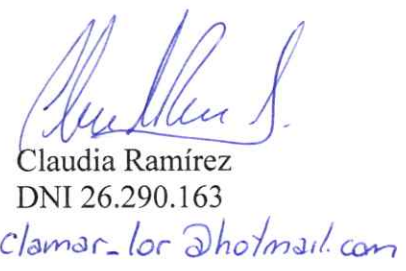 Claudia Ramírez
DNI 26.290.163
clamar_lor @hotmail.com